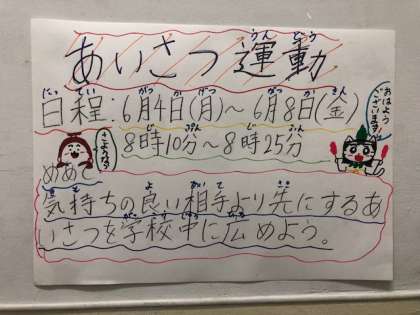 あいさつ運動
うんどう
日程:6月4日(月)〜6月8日(金)
にってい がつ か げつ がつ か きん
おはようございます
8時10分〜8時25分
じ ぷん じ ふん
さようなら
めあて
気持ちの良い相手より先にするあ
きも よ あいて さき
いさつを学校中に広めよう。
がっこうじゅう ひろ